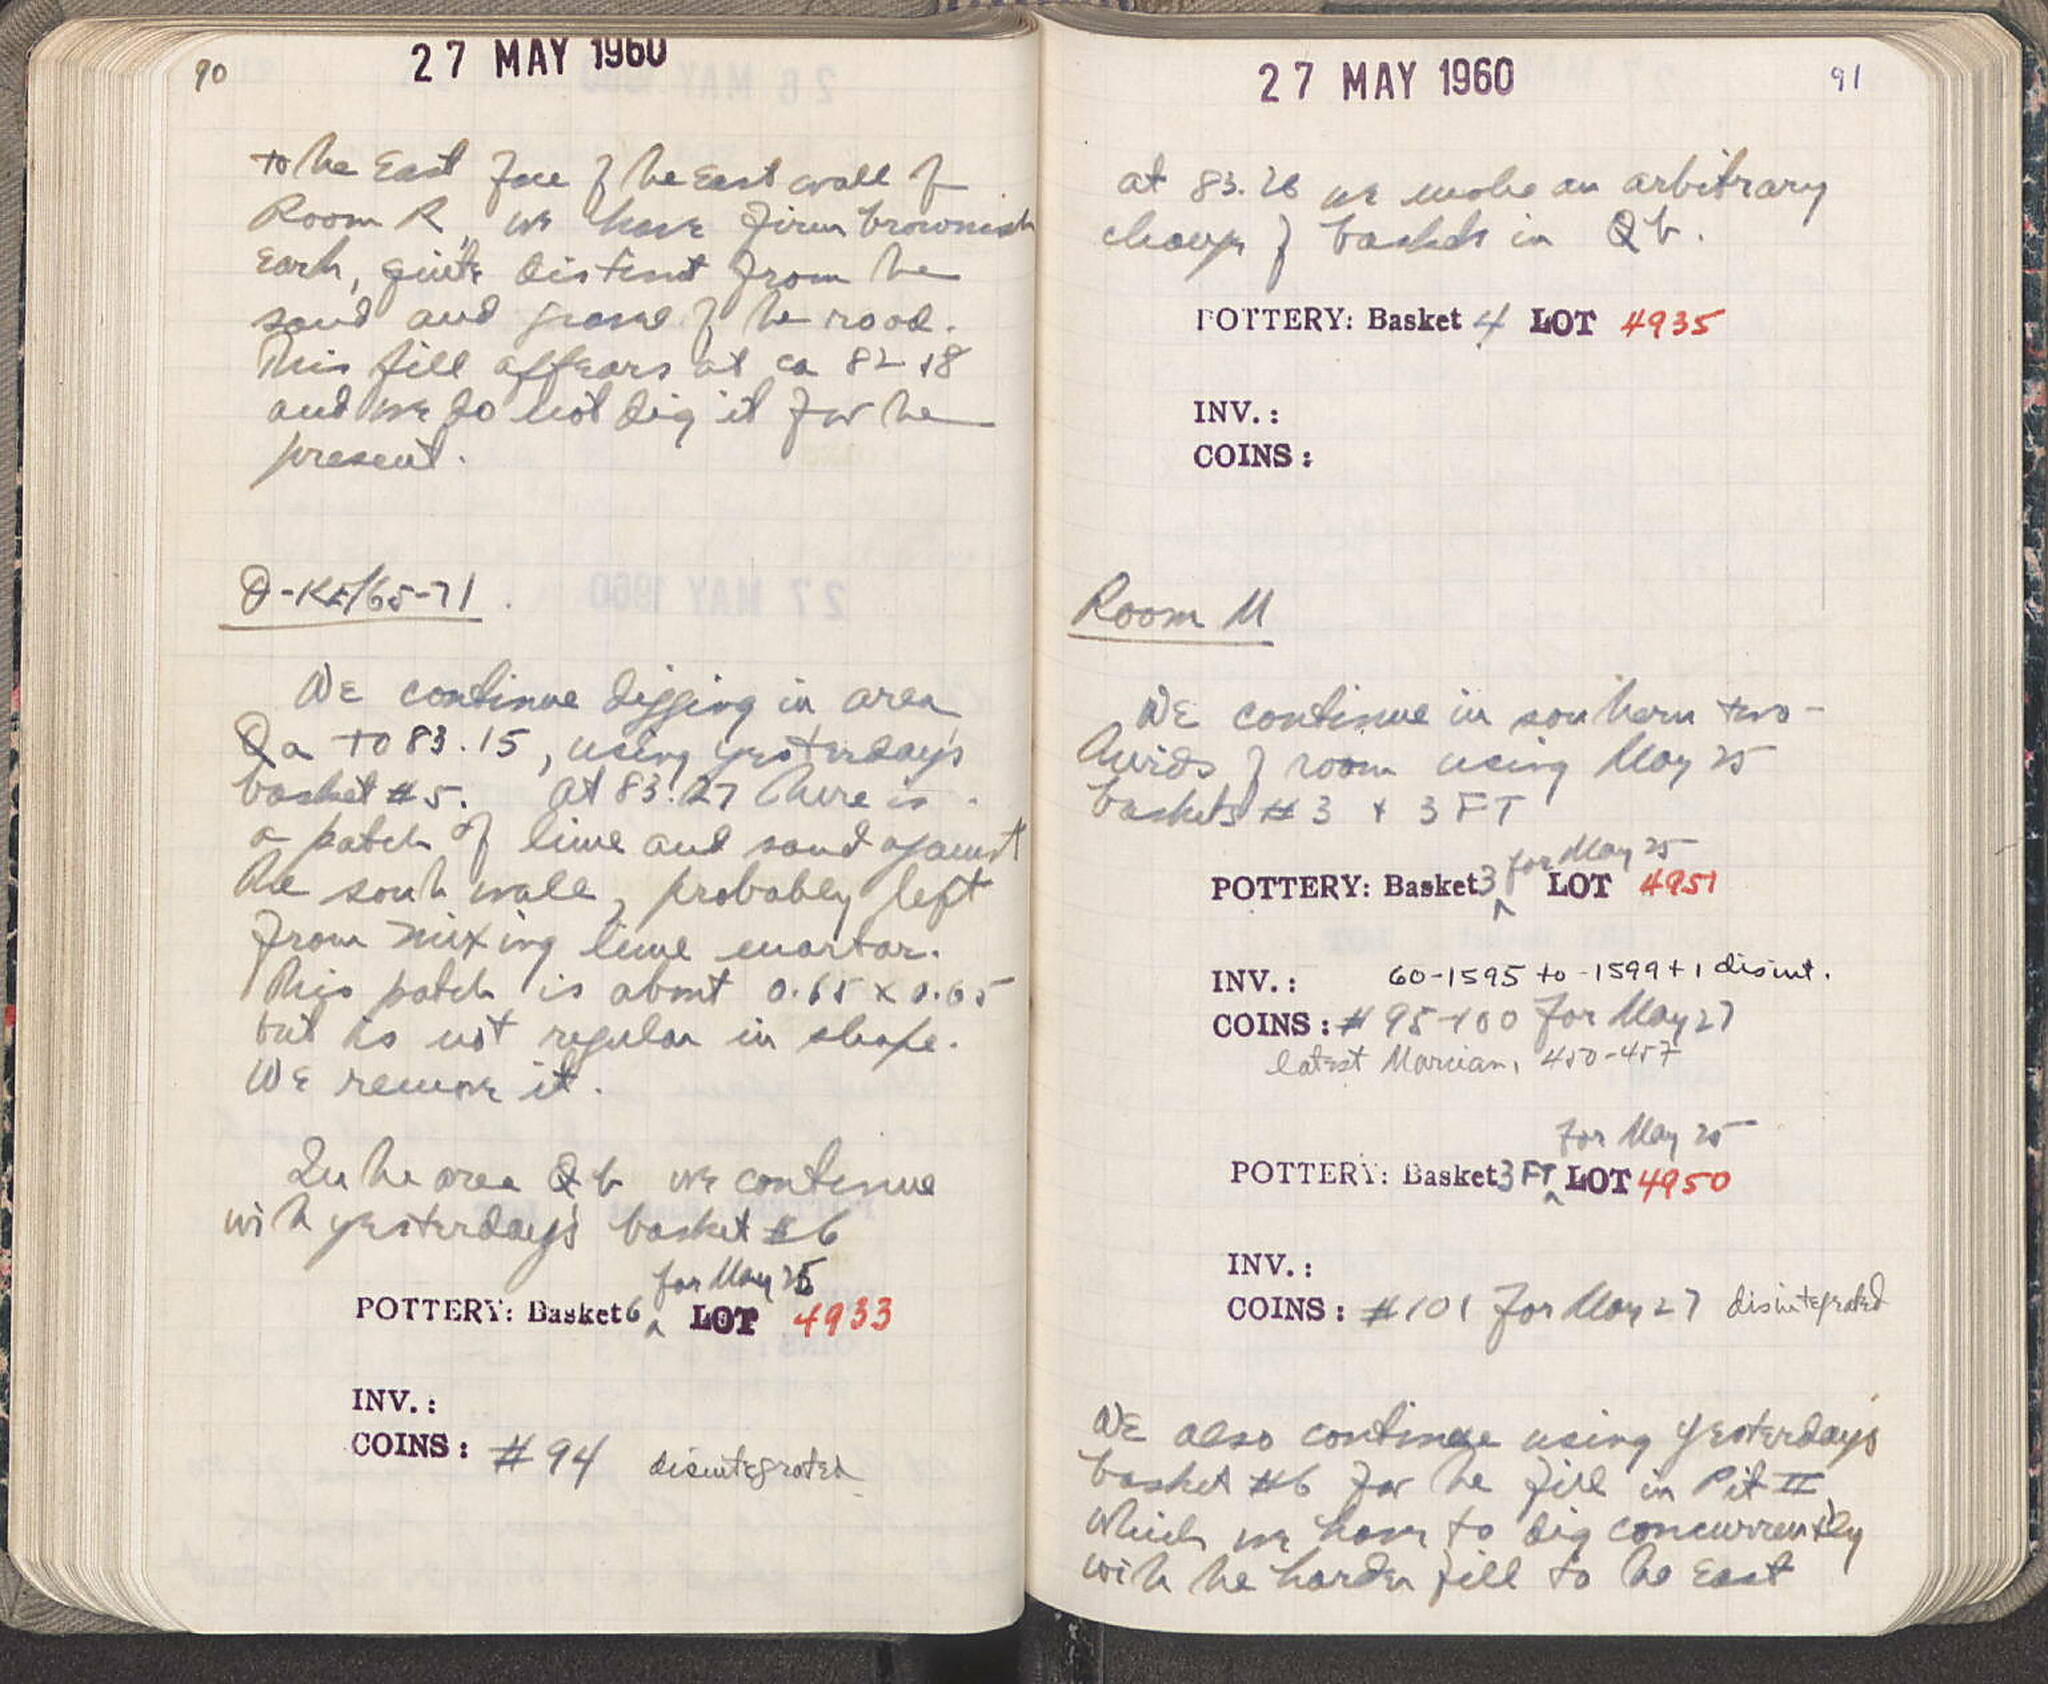 90
27 MAY 1960
to the East face of the East wall of
Room R, we have firm brownish
Earth, quite distinct from the
sand and gravel of the road.
This fill appears at ca 82.18
and we do not dig it for the
present.
Q-KE/65-71.
We continue digging in area
Qa to 83.15, using yesterday's
basket #5. At 83.27 there is
a patch of lime and sand against
the south wall, probably left
from mixing lime mortar.
This patch is about 0.65 x 0.65
but is not regular in shape.
We remove it.
In the area Qb we continue
with yesterday's basket #6
for May 26
POTTERY: Basket 6 ^ LOT 4933
INV.:
COINS: #94 disintegrated
27 MAY 1960
91
at 83.26 we make an arbitrary
change of baskets in Qb.
POTTERY: Basket 4 LOT 4935
INV.:
COINS:
Room M
We continue in southern two-
thirds of room using May 25
baskets #3 + 3FT
for May 25
POTTERY: Basket 3 ^ LOT 4951
INV.: 60-1595 to -1599 + 1 disint.
COINS: #95-100 for May 27
latest Marcian, 450-457
for May 25
POTTERY: Basket 3FT ^ LOT 4950
INV.:
COINS: #101 for May 27 disintegrated
We also continue using yesterday's
basket #6 for the fill in Pit II
which we have to dig concurrently
with the harder fill to the East